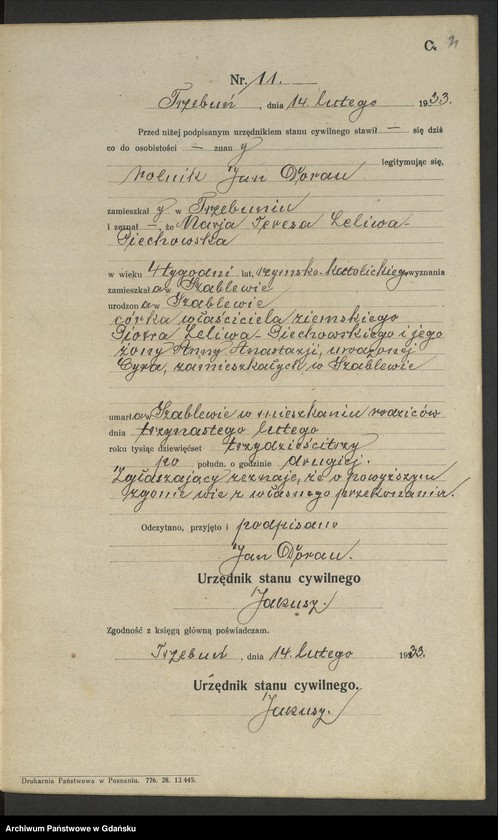 C. 21
Nr. 11.
Trzebuń, dnia 14. lutego 1933.
Przed niżej podpisanym urzędnikiem stanu cywilnego stawił — się dziś
co do osobistości — znany
legitymując się,
rolnik Jan Doran
zamieszkały w Trzebuniu
i zeznał —, że Marja Teresa Leliwa-
Piechowska
w wieku 4 tygodni lat, rzymsko-katolickiego wyznania
zamieszkała w Szablewie
urodzona w Szablewie
córka właściciela ziemskiego
Piotra Leliwa-Piechowskiego i jego
żony Anny Anastazji, urodzonej
Cyra, zamieszkałych w Szablewie
umarła w Szablewie w mieszkaniu rodziców
dnia trzynastego lutego
roku tysiąc dziewięćset trzydzieści trzy
po połudn. o godzinie drugiej.
Zgłaszający zeznaje, że o powyższym
zgonie wie z własnego przekonania.
Odczytano, przyjęto i podpisano
Jan Doran.
Urzędnik stanu cywilnego
Jakusz.
Zgodność z księgą główną poświadczam.
Trzebuń, dnia 14. lutego 1933.
Urzędnik stanu cywilnego.
Jakusz.
Drukarnia Państwowa w Poznaniu. 776. 28. 13 445.
Archiwum Państwowe w Gdańsku